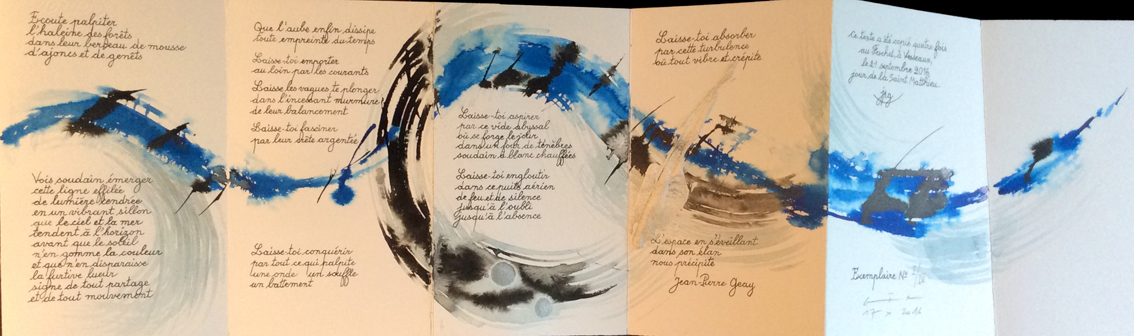 Ecoute palpiter
l'haleine des forêts
dans leur berceau de mousse
d'ajoncs et de genêts
Vois soudain émerger
cette ligne effilée
de lumière cendrée
en un vibrant sillon
que le ciel et la mer
tendent à l'horizon
avant que le soleil
n'en gomme la couleur
et que n'en disparaisse
la furtive lueur
signe de tout partage
et de tout mouvement
Que l'aube enfin dissipe
toute empreinte du temps
Laisse-toi emporter
au loin par les courants
Laisse les vagues te plonger
dans l'incessant murmure
de leur balancement
Laisse-toi fasciner
par leur crête argentée
Laisse-toi conquérir
par tout ce qui palpite
une onde un souffle
un battement
Laisse-toi aspirer
par ce vide abyssal
où se forge le jour
dans un four de ténèbres
soudain à blanc chauffées
Laisse-toi engloutir
dans ce puits aérien
de feu et de silence
jusqu'à l'oubli
jusqu'à l'absence
Laisse-toi absorber
par cette turbulence
où tout vibre et crépite
L'espace en s'éveillant
dans son élan
nous précipite
Jean-Pierre Geay
Ce texte a été copié quatre fois
au
le 21 septembre 2016
jour de la Saint Matthieu.
jpg
Exemplaire N°
17 x 2016